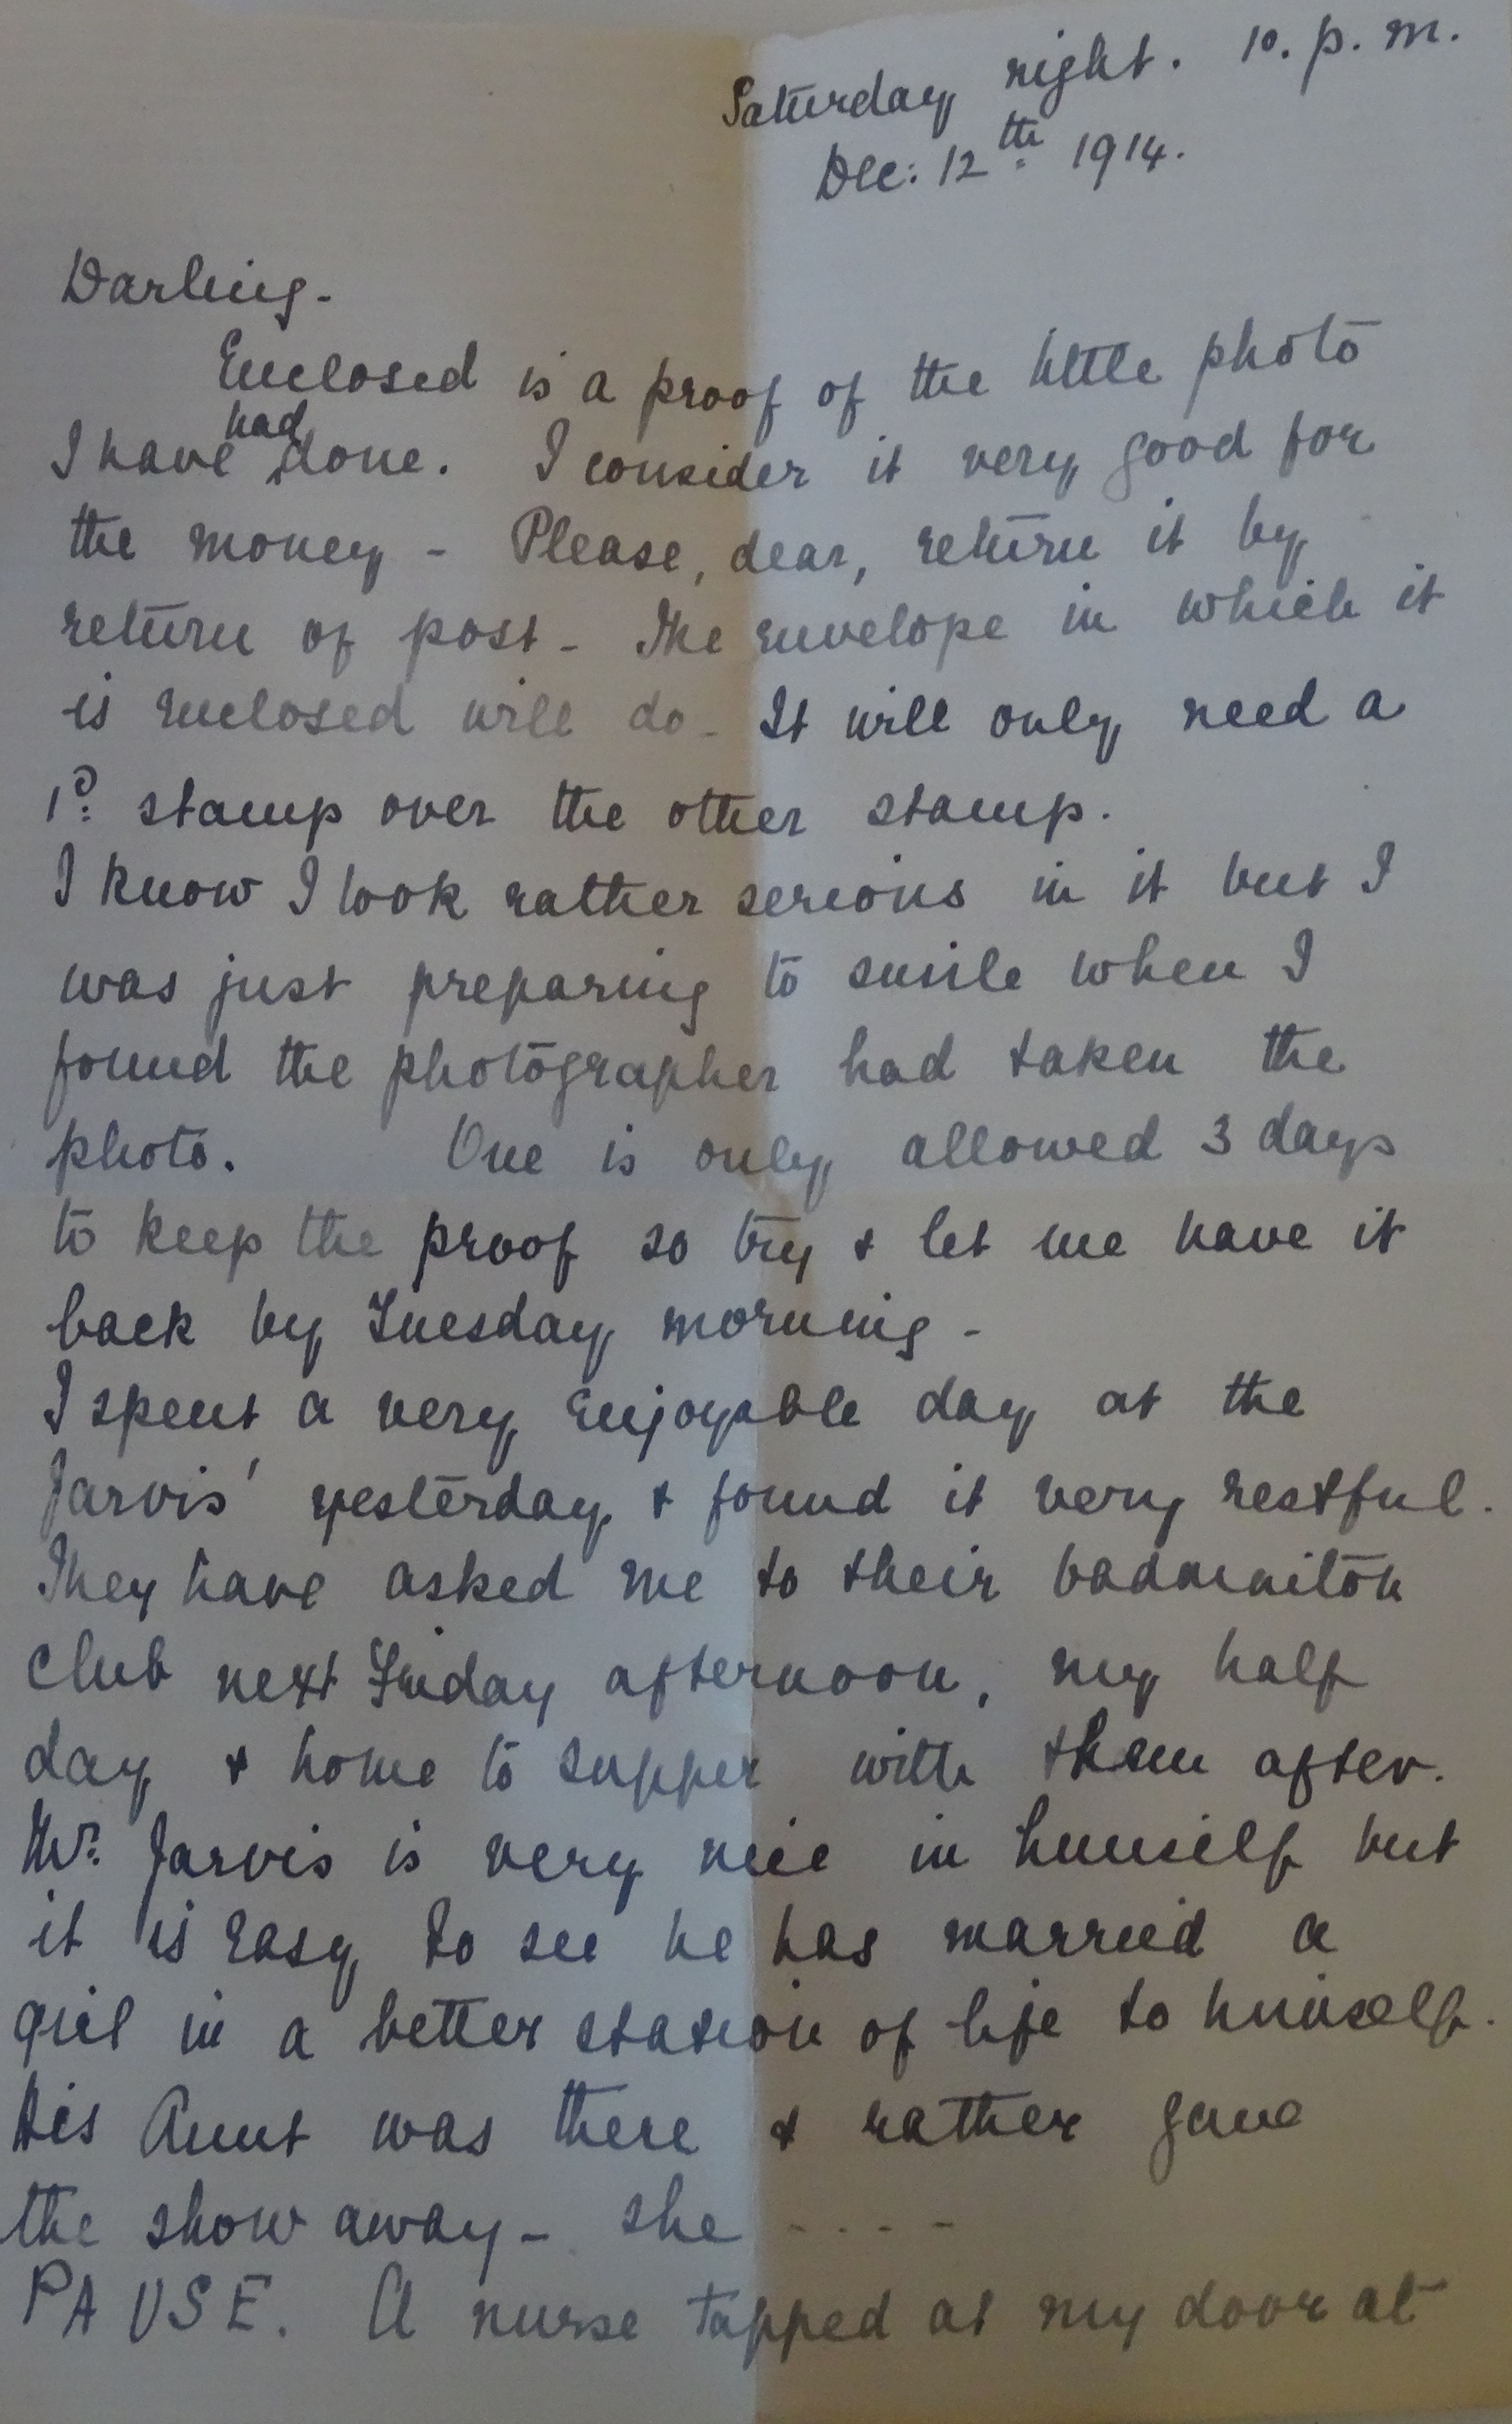 Saturday night. 10. p. m.
Dec: 12th 1914.
Darling-
Enclosed is a proof of the little photo
I have had done. I consider it very good for
the money - Please, dear, return it by
return of post - The envelope in which it
is enclosed will do - It will only need a
1d: stamp over the other stamp.
I know I look rather serious in it but I
was just preparing to smile when I
found the photographer had taken the
photo. One is only allowed 3 days
to keep the proof so try & let me have it
back by Tuesday morning -
I spent a very enjoyable day at the
Jarvis' yesterday & found it very restful.
They have asked me to their badminton
club next Friday afternoon, my half
day & home to supper with them after.
Mr: Jarvis is very nice in himself but
it is easy to see he has married a
girl in a better station of life to himself.
His Aunt was there & rather gave
the show away - she - . . . -
PAUSE. A nurse tapped at my door at